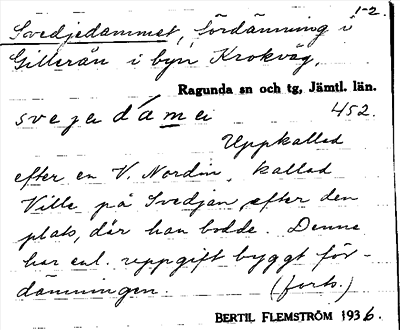 1-2.
Svedjedammet, fördämning i
Gillerån i byn Krokvåg,
Ragunda sn och tg, Jämtl. län.
svejedámei 452.
Uppkallad
efter en V. Nordin, kallad
Ville på Svedjan efter den
plats, där han bodde. Denne
har enl. uppgift byggt för-
dämningen. (forts.)
BERTIL FLEMSTRÖM 1936.